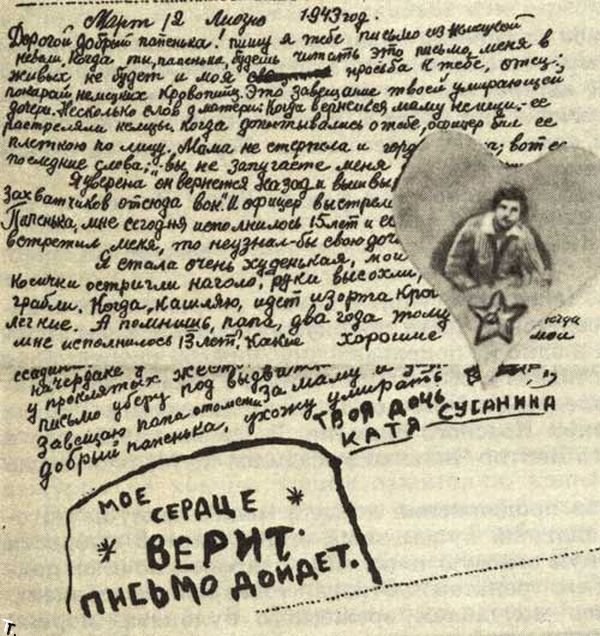 Март 12 Лиозно 1943 год.
Дорогой добрый папенька! пишу я тебе письмо из немецкой
неволи. Когда ты, папенька, будешь читать это письмо, меня в
живых не будет и моя просьба к тебе, отец:
покарай немецких кровопийц. Это завещание твоей умирающей
дочери. Несколько слов о матери. Когда вернешься маму не ищи. ее
растреляли немцы. Когда допытывались о тебе, офицер бил ее
плеткою по лицу. Мама не стерпела и гордо вот ее
последние слова: „вы не запугаете меня
Я уверена он вернется назад и вышвыр
захватчиков отсюда вон". И офицер выстрелил
Папенька, мне сегодня исполнилось 15 лет и если
встретил меня, то неузнал-бы свою дочь
Я стала очень худенькая, мои
косички остригли наголо, руки высохли,
грабли. Когда, кашляю, идет изорта кровь
легкие. А помнишь, папа, два года тому когда
мне исполнилось 13 лет? Какие хорошие мои
на чердаке у
у проклятых
письмо уберу под
Завещаю папа отомсти за маму и
добрый папенька, ухожу умирать
ТВОЯ ДОЧЬ
КАТЯ СУСАНИНА
МОЕ
СЕРДЦЕ
ВЕРИТ.
ПИСЬМО ДОЙДЕТ.